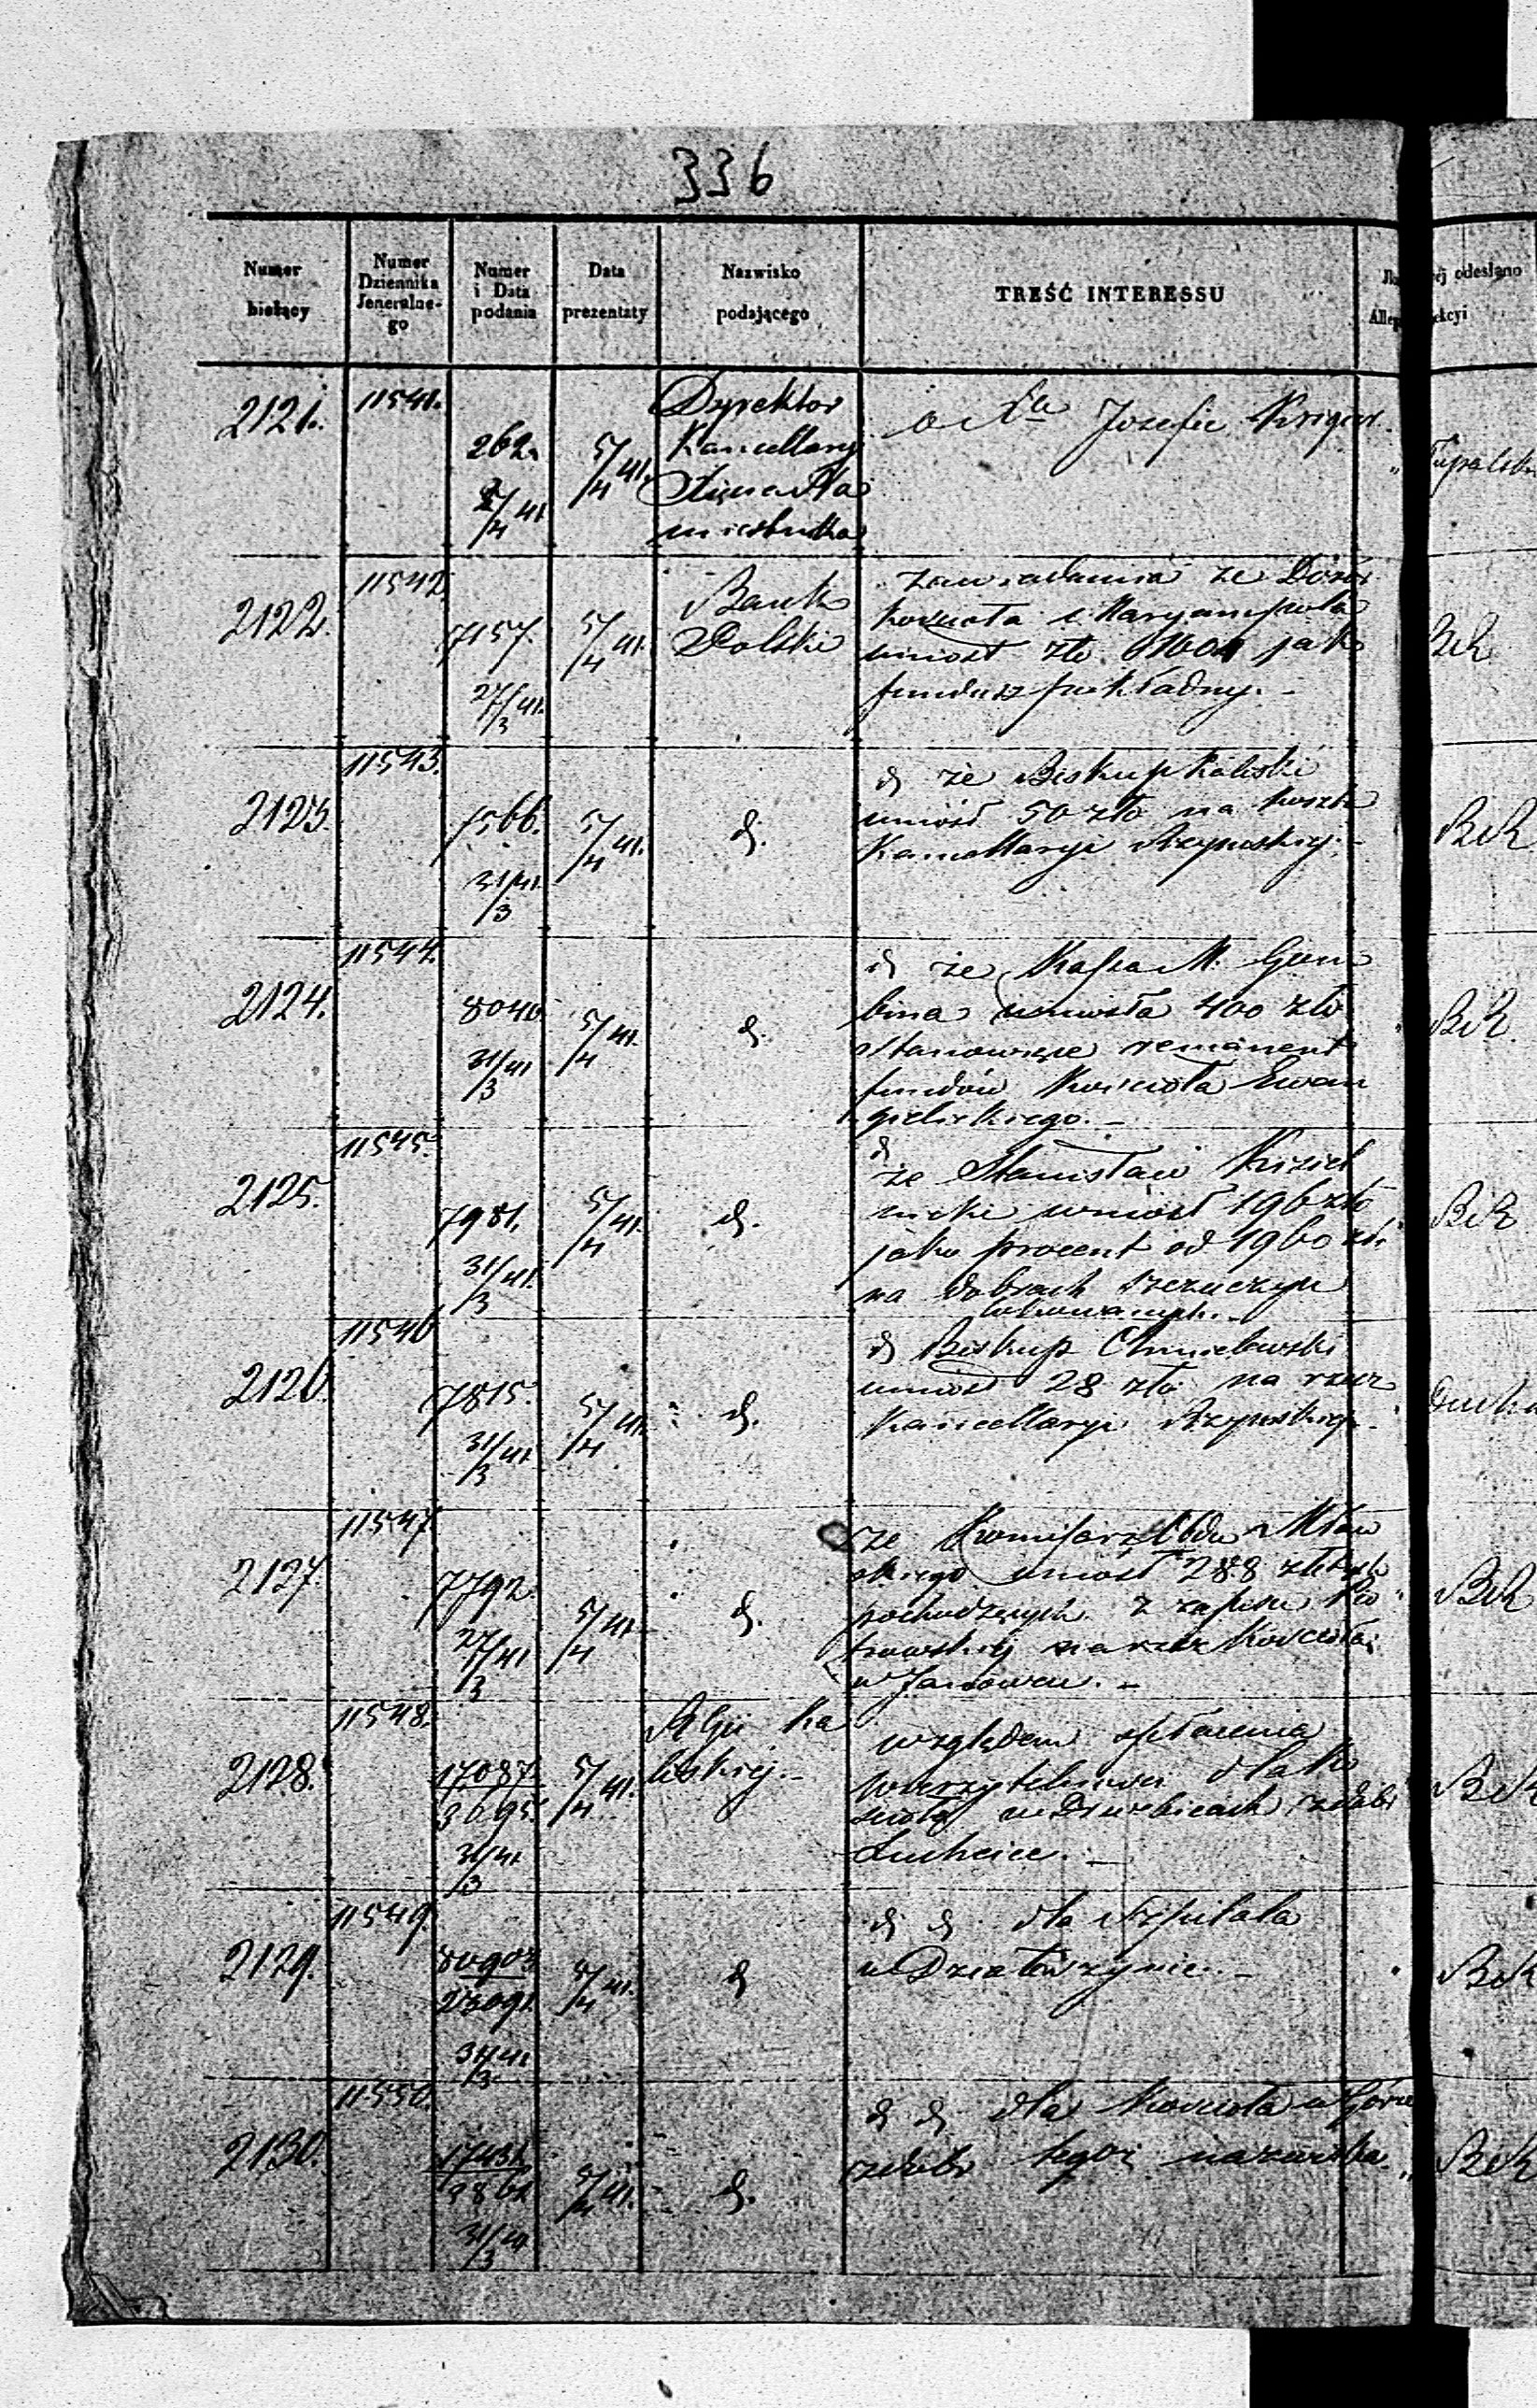 336
Numer bieżący
Numer Dziennika Jeneralne-go
Numer i Data podania
Data prezentaty
Nazwisko podającego
TREŚĆ INTERESSU
odesłano
2121.
11541.
262.
5/4 41.
Dyrektor
Kancellaryi
Xięcia Na
miestnika
o Józefie Kriger
2122.
11542.
7157.
27/3 41.
5/4 41.
Bank
Polski
zawiadamia że Dozór
Kościoła z Maryampola
wniósł złp. jako
fundusz pokładny. -
BiR
2123.
11543.
7566.
31/3 41.
5/4 41.
d.
d że Biskup Kaliski
wniósł 50 złp na koszta
Kancellaryi Rzymskiej. -
BiR
2124.
11544.
8040
31/3 41
5/4 41.
d.
d że Kassa M. Gom
bina wniosła 400 złp
stanowiące remanent
fundów Kościoła Ewan
gielickiego. -
BiR.
2125.
11545.
7981.
31/3 41.
5/4 41.
d.
d
że Stanisław Kisiel
nicki wniósł 196 złp
jako procent od 1960 złp
na dobrach Szczuczyn
lokowanych. -
BiR
2126.
11546
7815.
31/3 41.
5/4 41.
d.
d Biskup Chmielewski
wniósł 28 złp na rzecz
Kancellaryi Rzymskiej. -
2127.
11547
7792.
27/3 41
5/4 41.
d.
że Komisarz Obdu Mław
skiego wniósł 288 złp
pochodzących z zapisu
na rzecz Kościoła
w Janowcu. -
BiR
2128.
11548.
17087
3095.
31/3 41
5/4 41.
R Gu Ka
liskiej. -
względem spłacenia
wierzytelności dla Ko
ścioła w Drużbicach z dóbr
Suchcice. -
BiR
2129.
11549.
80903
23091.
31/3 41
5/4 41.
d
d d dla Szpitala
w Działoszynie. -
BiR
2130.
11550.
17431
31/3 41
5/4 41.
d.
d d dla Kościoła w Górze
z dóbr tegoż nazwiska.
BiR